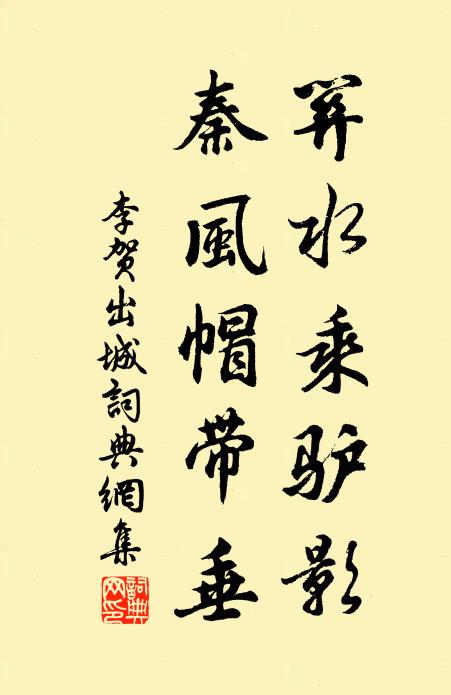 关水乘驴影
秦風帽带垂
李贺出城詞典網集
詞典网印